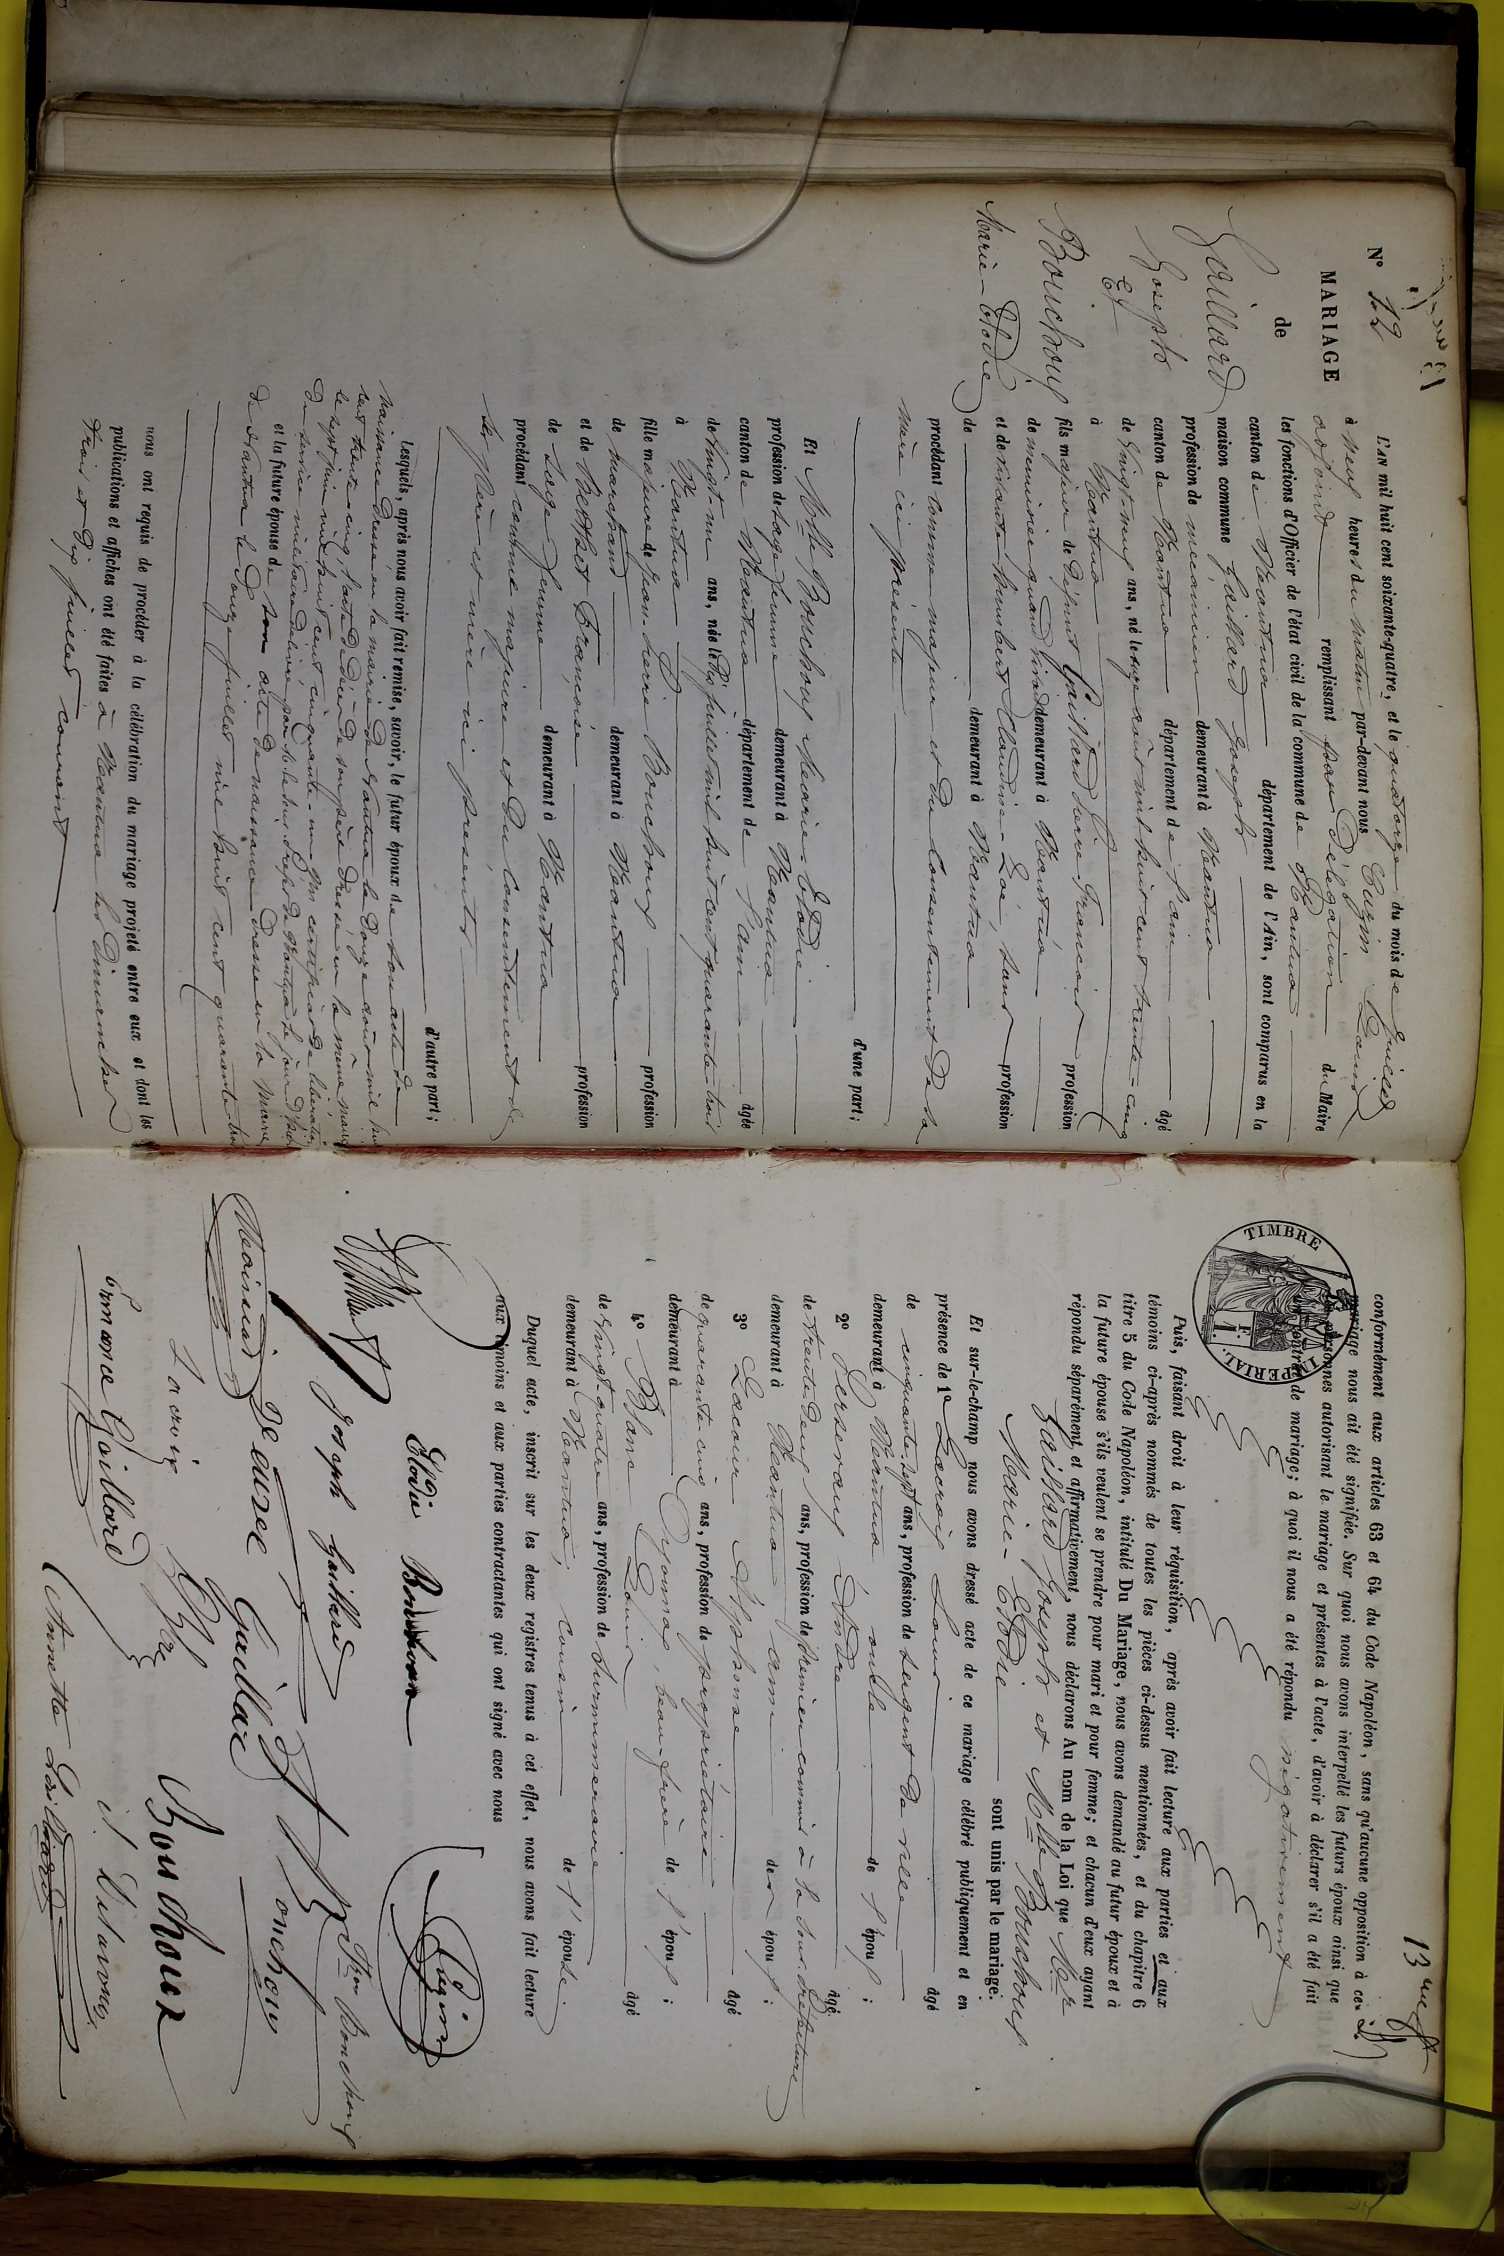 N° 12
MARIAGE
de
Gaillard
Joseph
Et
Bouchoux
Marie-Elodie
L'AN mil huit cent soixante-quatre, et le quatorze du mois de Juillet
à neuf heures du matin par-devant nous Pugin Louis
adjoint remplissant par Délégation du Maire
les fonctions d'Officier de l'état civil de la commune de Nantua
canton de Nantua département de l'Ain, sont comparus en la
maison commune Gaillard Joseph
profession de mécanicien demeurant à Nantua
canton de Nantua département de l'ain âgé
de vingt neuf ans, né le août mil huit cent trente-cinq
à Nantua
fils majeur de défunt Gaillard Pierre-François profession
de menuisier quand vivait demeurant à Nantua
et de vivante Humbert Claudine-Zoé, sans profession
de demeurant à Nantua
procédant comme majeur et du Consentement de la
mère ici présente
d'une part;
Et Mlle Bouchoux Marie-Elodie
profession de Sage femme demeurant à Nantua
canton de Nantua département de l'ain âgée
de vingt-un ans, née le dix juillet mil huit cent quarante-trois
à Nantua
fille majeure de Jean-Pierre Bouchoux profession
de marchand demeurant à Nantua
et de Berthet Françoise profession
de Sage femme demeurant à Nantua
procédant comme majeure et du Consentement de
ses père et mère ici présents
d'autre part;
Lesquels, après nous avoir fait remise, savoir, le futur époux de son acte de
naissance dressé en la mairie de Nantua le douze août mil huit
cent trente-cinq, l'acte de décès de son père dressé en la même mairie
le sept juin mil huit cent cinquante-un, un certificat de libération
du service militaire délivré par le Préfet de l'jour d'hier
et la future épouse de son acte de naissance dressé en la mairie
de Nantua le douze juillet mil huit cent quarante-trois
nous ont requis de procéder à la célébration du mariage projeté entre eux et dont les
publications et affiches ont été faites à Nantua les dimanches
trois et dix juillet courant
13
conformément aux articles 63 et 64 du Code Napoléon, sans qu'aucune opposition à ce
mariage nous ait été signifiée. Sur quoi nous avons interpellé les futurs époux ainsi que
les personnes autorisant le mariage et présentes à l'acte, d'avoir à déclarer s'il a été fait
un contrat de mariage; à quoi il nous a été répondu négativement
TIMBRE IMPÉRIAL
1 F.
Puis, faisant droit à leur réquisition, après avoir fait lecture aux parties et aux
témoins ci-après nommés de toutes les pièces ci-dessus mentionnées, et du chapitre 6
titre 5 du Code Napoléon, intitulé Du Mariage, nous avons demandé au futur époux et à
la future épouse s'ils veulent se prendre pour mari et pour femme; et chacun d'eux ayant
répondu séparément et affirmativement, nous déclarons Au nom de la Loi que Mr
Gaillard Joseph et Mlle Bouchoux
Marie-Elodie sont unis par le mariage.
Et sur-le-champ nous avons dressé acte de ce mariage célébré publiquement et en
présence de 1° Lacroix Louis âgé
de cinquante-sept ans, profession de Sergent de ville
demeurant à Nantua oncle de l'époux;
2° Perseraux André âgé
de trente deux ans, profession de premier commis à la Sous-Préfecture
demeurant à Nantua ami des époux;
3° Lacour Alphonse âgé
de quarante cinq ans, profession de propriétaire
demeurant à Oyonnax, beau-frère de l'époux;
4° Blanc Louis âgé
de vingt-quatre ans, profession de Surnuméraire
demeurant à Nantua, cousin de l'épouse.
Duquel acte, inscrit sur les deux registres tenus à cet effet, nous avons fait lecture
aux témoins et aux parties contractantes qui ont signé avec nous
Elodie Bouchoux
Pugin
Joseph Gaillard
Fçon Bouchoux
Gaillard
Bouchoux
Lacroix
Bouchoux
Ermance Gaillard
Annette Gaillard